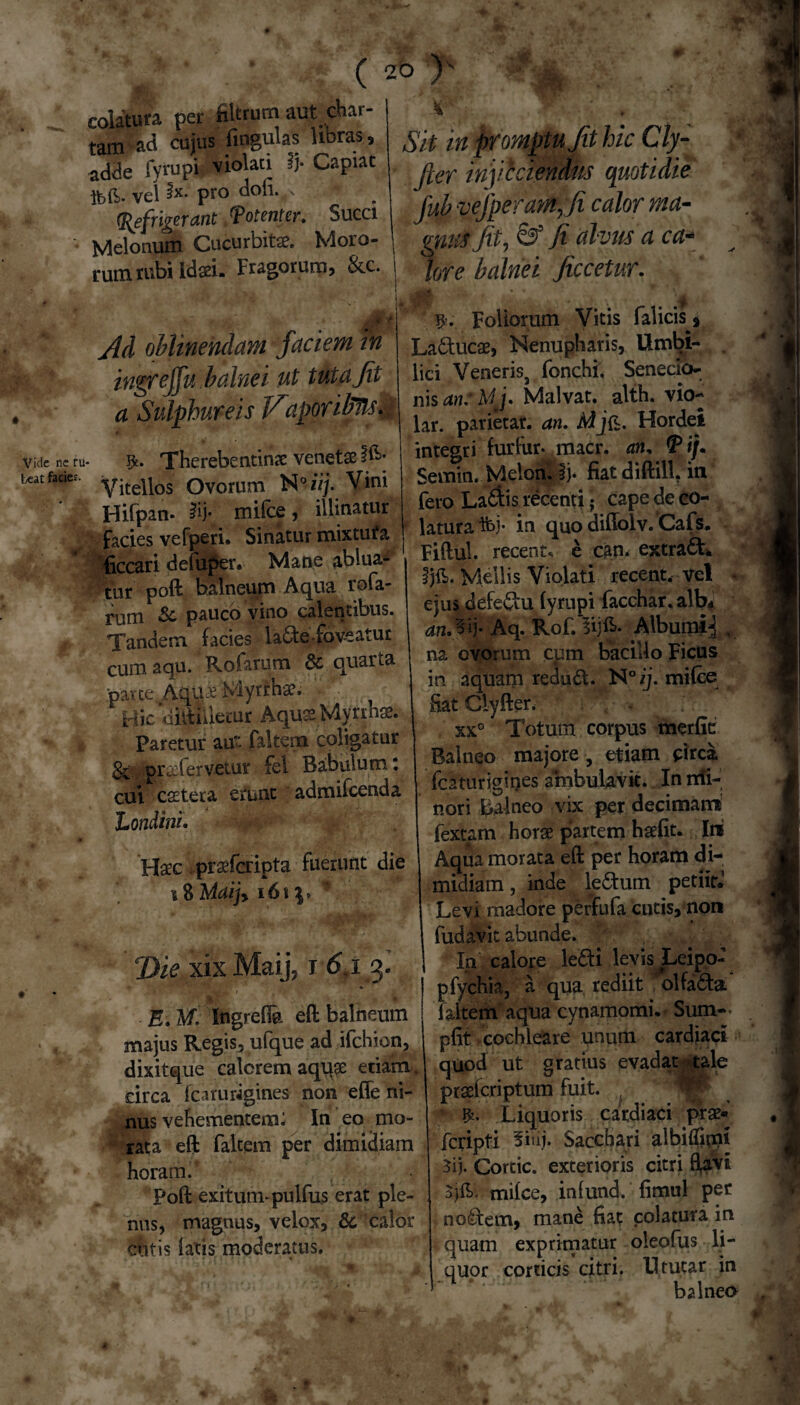 ( 20 )
colatura per filtrum aut char-
tam ad cujus ſingulas libras,
adde ſyrupi violati ℥j. Capiat
℔ß. vel ℥x. pro doſi.
Refrigerant Potenter. Succi
Melonum Cucurbitæ. Moro-
rum rubi Idæi. Fragorum, &c.
Ad oblinendam faciem in
ingreſſu balnei ut tuta ſit
a Sulphureis Vaporibus.
Vide ne ru-
beat facies.
℞. Therebentinæ venetæ ℥ß.
Vitellos Ovorum N° iij. Vini
Hiſpan. ℥ij. miſce, illinatur
facies veſperi. Sinatur mixtura
ſiccari deſuper. Mane ablua-
tur poſt balneum Aqua roſa-
rum & pauco vino calentibus.
Tandem facies lacte foveatur
cum aqu. Roſarum & quarta
parte Aquæ Myrrhæ.
Hic diſtilletur Aquæ Myrrhæ.
Paretur aut ſaltem coligatur
& præſervetur fel Babulum:
cui cætera erunt admiſcenda
Londini.
Hæc præſcripta fuerunt die
18 Maij, 1613.
Die xix Maij, 1613.
E. M. Ingreſſa eſt balneum
majus Regis, uſque ad iſchion,
dixitque calorem aquæ etiam
circa ſcaturigines non eſſe ni-
nus vehementem: In eo mo-
rata eſt ſaltem per dimidiam
horam.
Poſt exitum pulſus erat ple-
nus, magnus, velox, & calor
cutis ſatis moderatus.
Sit in promptu ſit hic Cly-
ſter injiciendus quotidie
ſub veſperam, ſi calor ma-
gnus ſit, & ſi alvus a ca-
lore balnei ſiccetur.
℞. Foliorum Vitis ſalicis,
Lactucæ, Nenupharis, Umbi-
lici Veneris, ſonchi, Senecio-
nis an. Mj. Malvar. alth. vio-
lar. parietar. an. Mjß. Hordei
integri furfur. macr. an. Pij.
Semin. Melon. ℥j. fiat diſtill. in
ſero Lactis recenti; cape de co-
latura ℔j. in quo diſſolv. Caſs.
Fiſtul. recent. è can. extract.
℥jß. Mellis Violati recent. vel
ejus defectu ſyrupi ſacchar. alb.
an. ℥ij. Aq. Roſ. ℥ijß. Albumi-
na ovorum cum bacillo Ficus
in aquam reduct. N° ij. miſce
fiat Clyſter.
xx° Totum corpus merſit
Balneo majore, etiam circa
ſcaturigines ambulavit. In mi-
nori Balneo vix per decimam
ſextam horæ partem hæſit. In
Aqua morata eſt per horam di-
midiam, inde lectum petiit.
Levi madore perfuſa cutis, non
ſudavit abunde.
In calore lecti levis Leipo-
pſychia, à qua rediit olfacta
ſaltem aqua cynamomi. Sum-
pſit cochleare unum cardiaci
quod ut gratius evadat tale
præſcriptum fuit.
℞. Liquoris cardiaci præ-
ſcripti ℥iiij. Sacchari albiſſimi
ʒij. Cortic. exterioris citri flavi
ʒjß. miſce, infund. ſimul per
noctem, manè fiat colatura in
quam exprimatur oleoſus li-
quor corticis citri. Ututar in
balneo